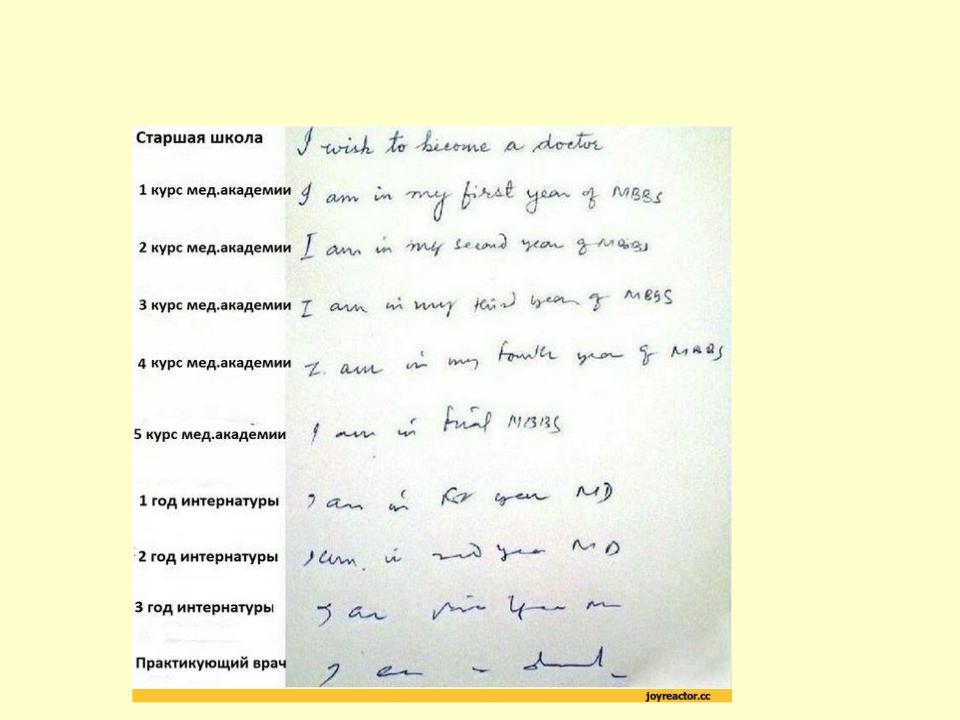 Старшая школа I wish to become a doctor
1 курс мед.академии I am in my first year of MBBS
2 курс мед.академии I am in my second year of MBBS
3 курс мед.академии I am in my third year of MBBS
4 курс мед.академии I. am in my fourth year of MBBS
5 курс мед.академии I am in final MBBS
1 год интернатуры I am in 1st year MD
2 год интернатуры I am in 2nd year MD
3 год интернатуры I am year
Практикующий врач I am
joyreactor.cc